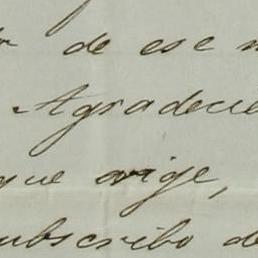 de ese
Agradecie
que exige,
subscribo de